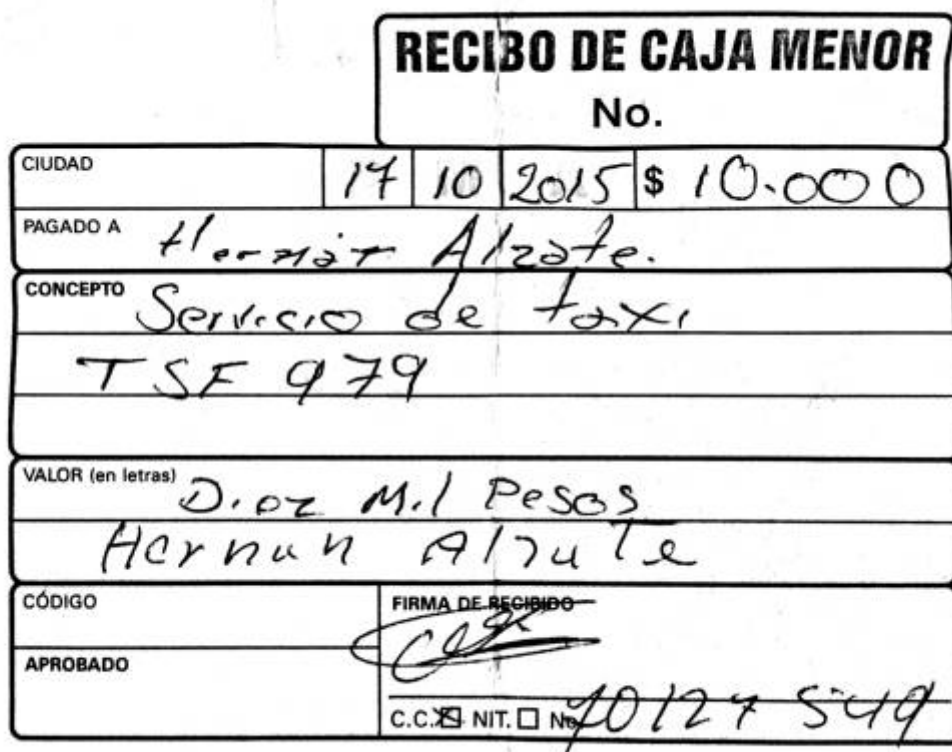 RECIBO DE CAJA MENOR
No.
CIUDAD 17 10 2015 $ 10.000
PAGADO A Hernán Alzate.
CONCEPTO Servicio de taxi
TSF 979
VALOR (en letras) Diez Mil Pesos
Hernan Alzate
CÓDIGO FIRMA DE RECIBIDO
APROBADO
C.C. NIT. No. 10127549